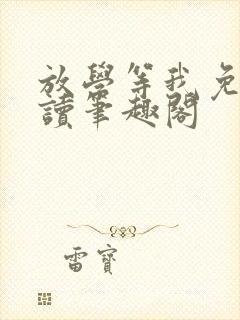 放學等我免
讀筆趣閣
雷寶